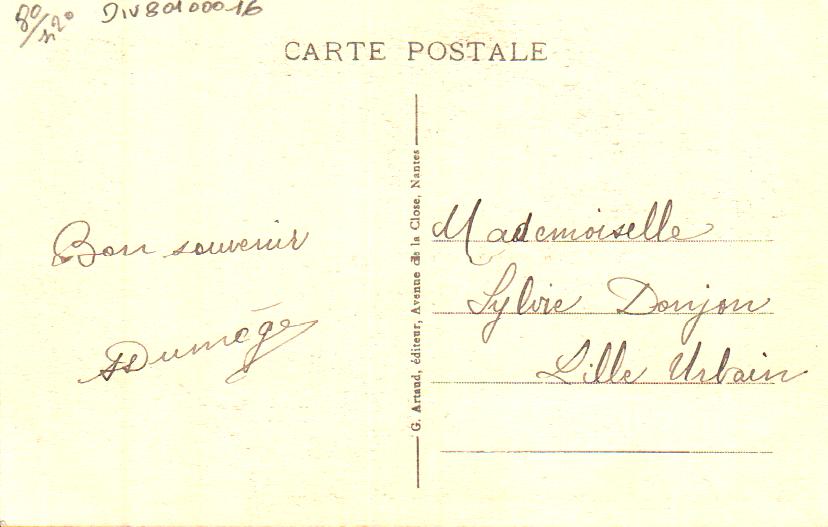 80/420 DIV801000-16
CARTE POSTALE
G. Artaud, éditeur, Avenue de la Close, Nantes
Bon souvenir
SDumége
Mademoiselle
Sylvie Donjon
Lille Urbain